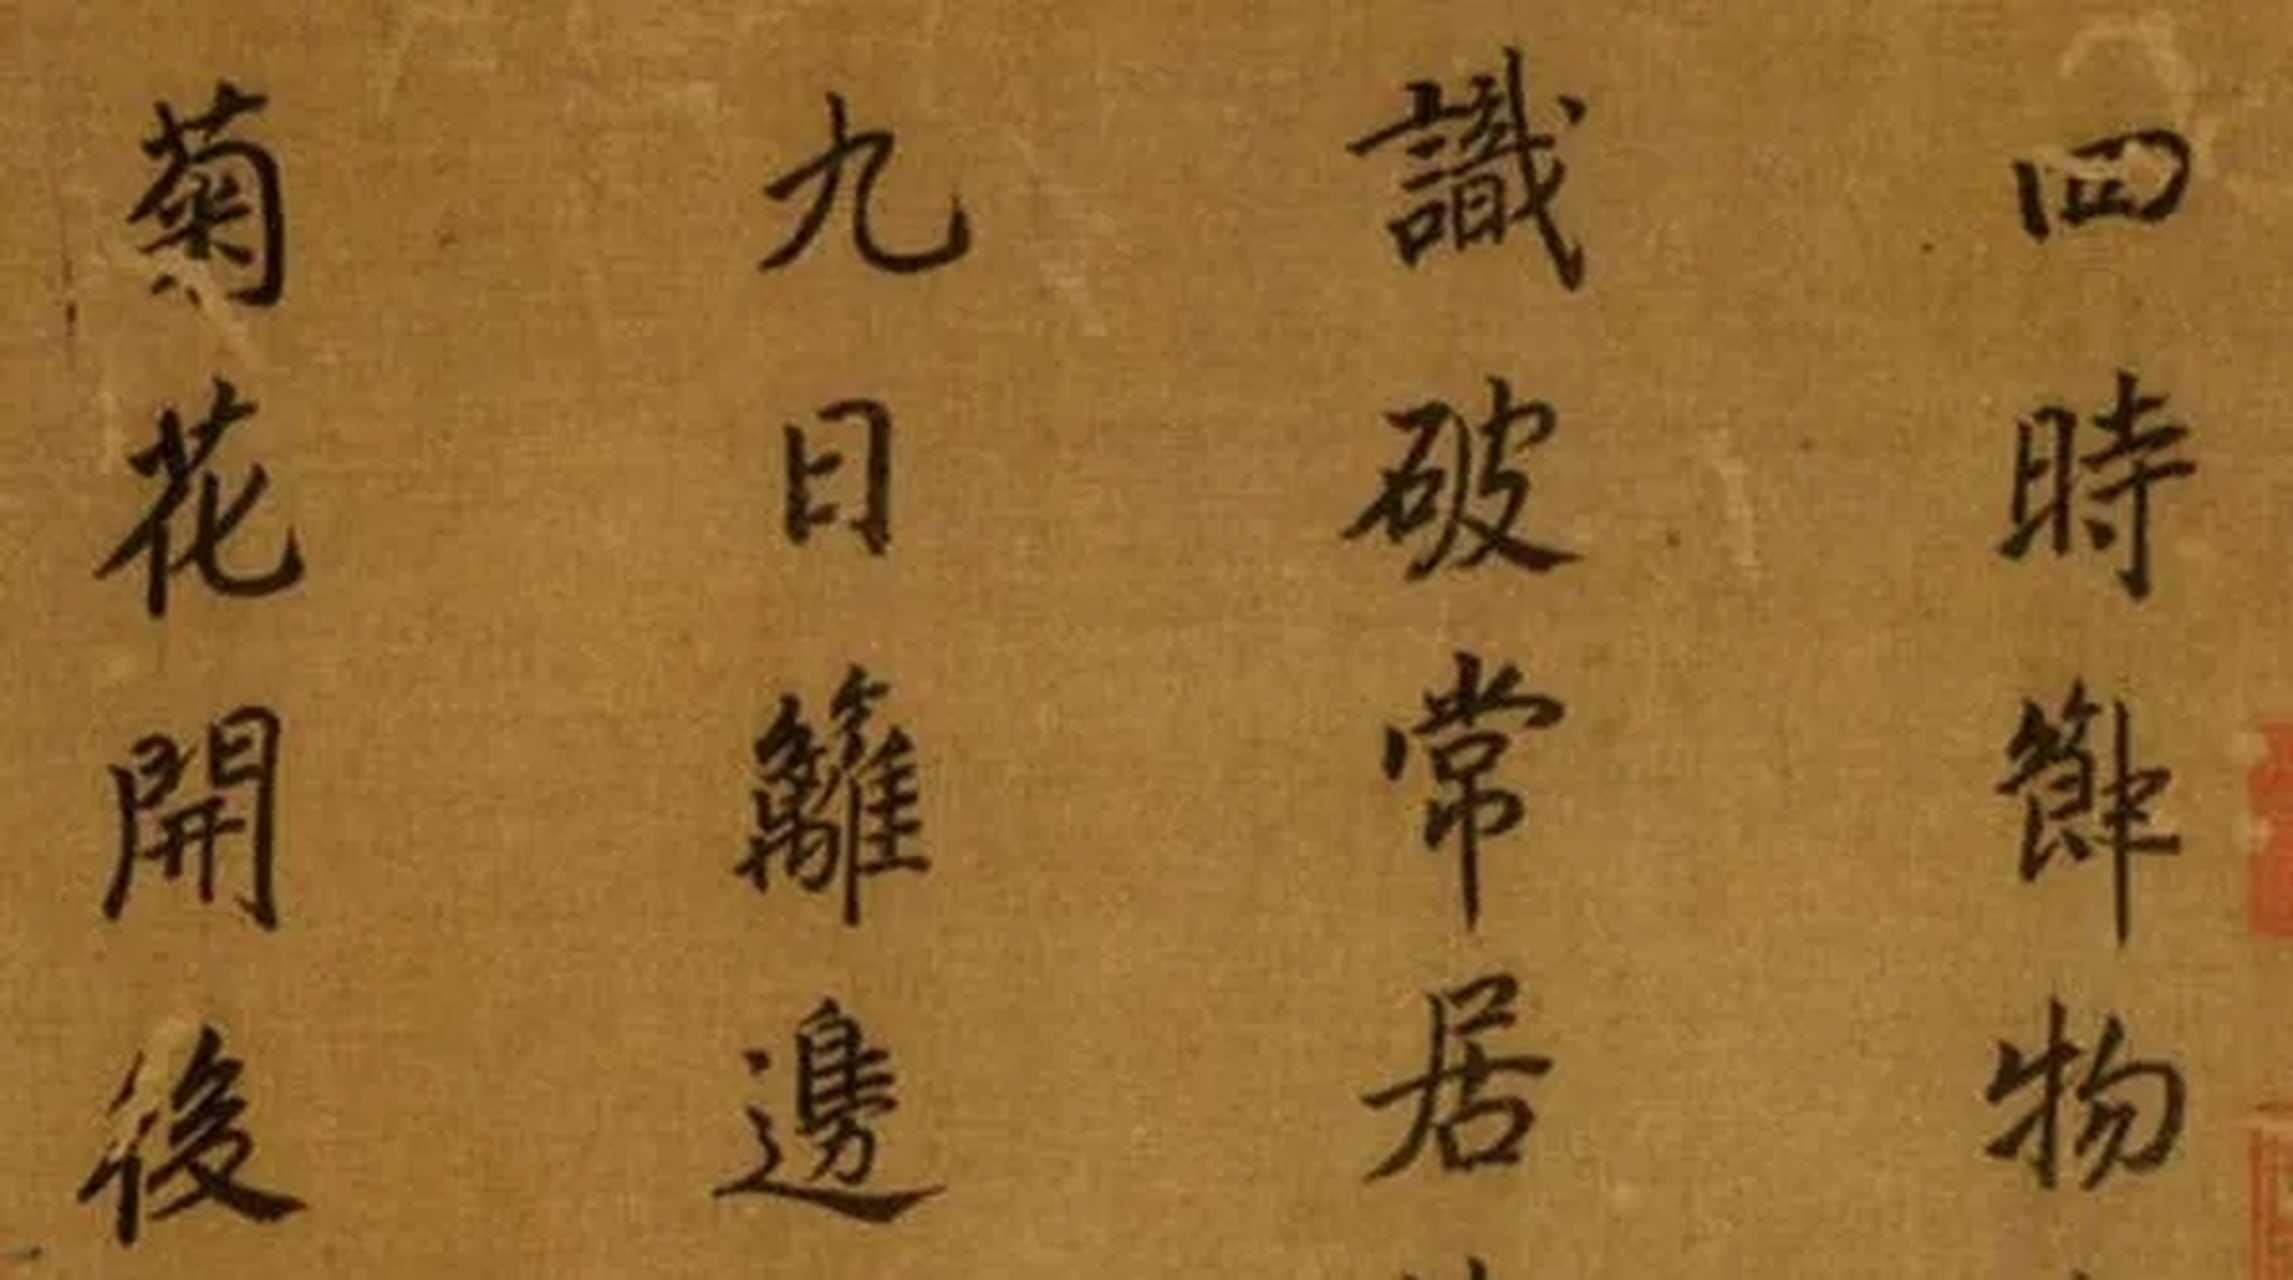 四時節物
識破常居
九日籬邊
菊花開後